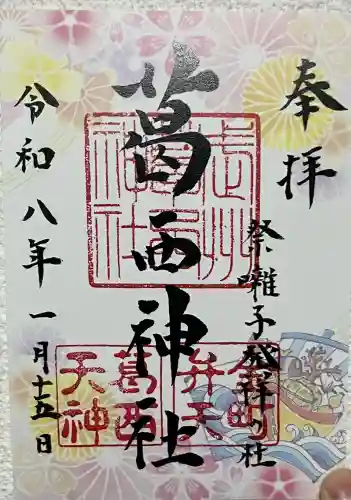 奉拝
祭囃子発祥の社
葛西神社
令和八年一月十五日
葛西
天神
弁天